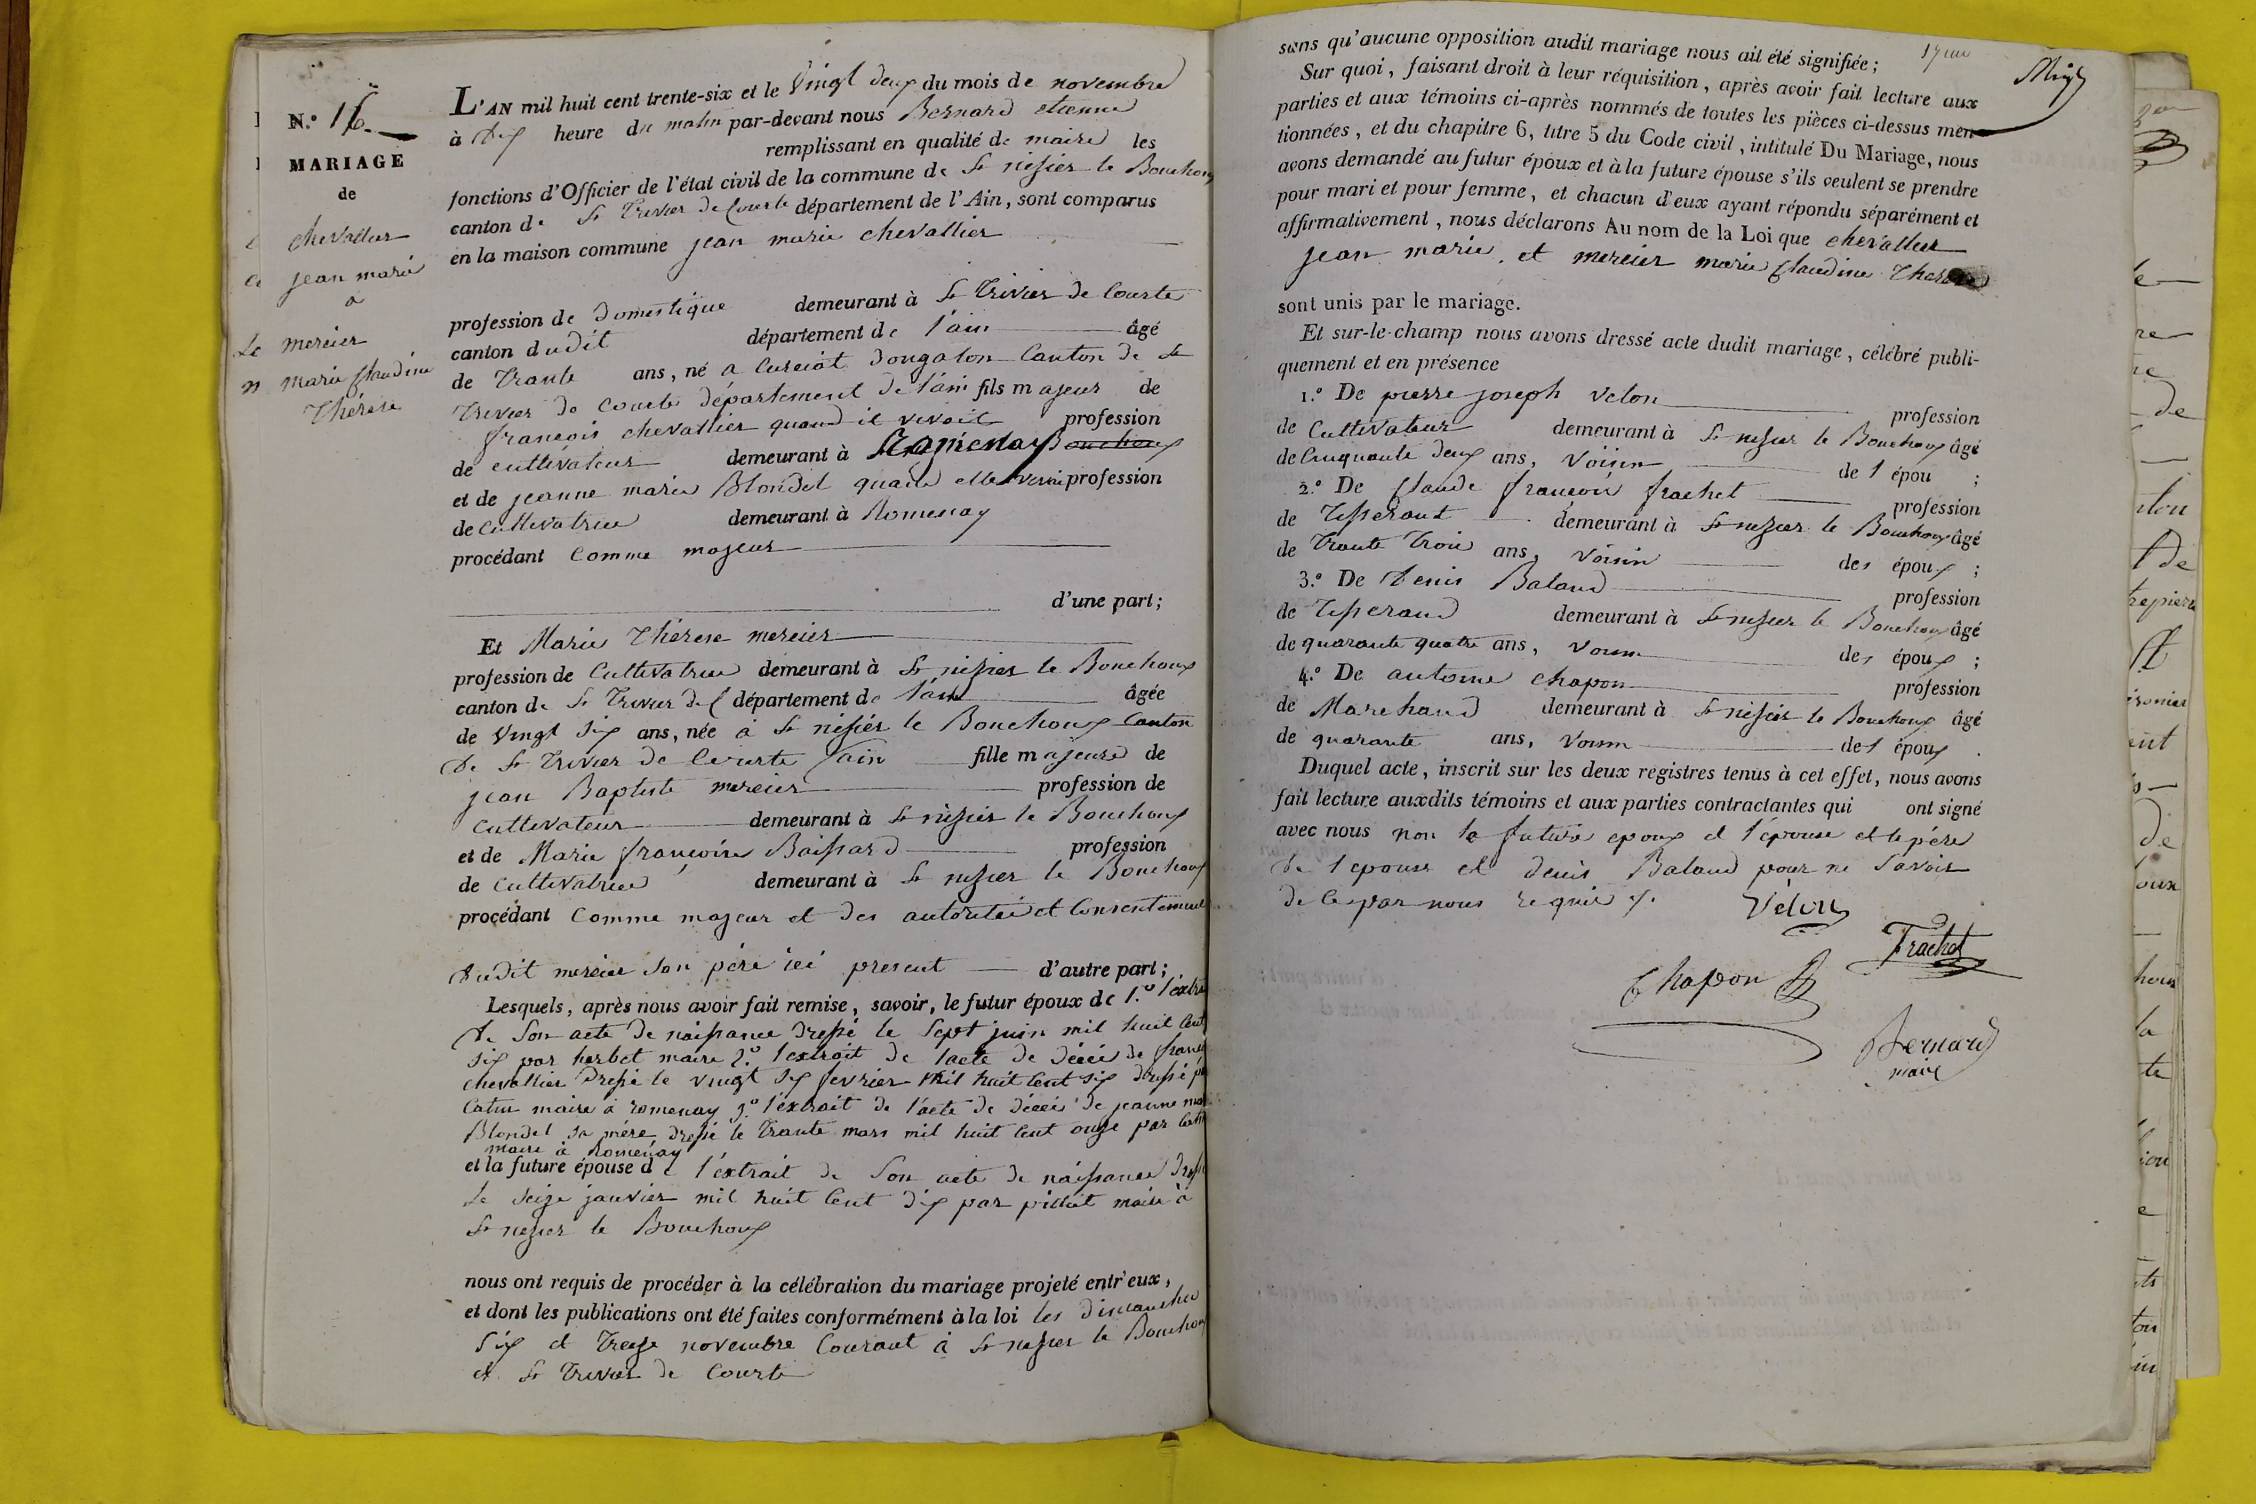 N.º 16.
MARIAGE
de
chevallier
jean marie
a
mercier
marie claudine
Thérèse
L'AN mil huit cent trente-six et le vingt deux du mois de novembre
à dix heure du matin par-devant nous Bernard etienne
remplissant en qualité de maire les
fonctions d'Officier de l'état civil de la commune de St nisier le Bouchoux
canton de St Trivier de Courte département de l'Ain, sont comparus
en la maison commune jean marie chevallier
profession de domestique demeurant à St Trivier de Courte
canton dudit département de l'ain âgé
de Trante ans, né a Curciat dongalon Canton de St
Trivier de Courte département de l'ain fils majeur de
françois chevallier quand il vivoit profession
de cultivateur demeurant à Romenay Bouchoux
et de jeanne marie Blondel quand elle vivoit profession
de cultivatrice demeurant à Romenay
procédant comme majeur
d'une part;
Et Marie Thérèse mercier
profession de Cultivatrice demeurant à St nizier le Bouchoux
canton de St Trivier de C département de l'ain âgée
de vingt six ans, née à St nisiér le Bouchoux Canton
de St Trivier de Courte l'ain fille majeure de
jean Baptiste mercier profession de
cultivateur demeurant à St nisier le Bouchoux
et de Marie françoise Baissard profession
de cultivatrice demeurant à St nizier le Bouchoux
procédant comme majeur et des autorité et Consentement
dudit mercier son pére ici present d'autre part;
Lesquels, après nous avoir fait remise, savoir, le futur époux de 1.º l'extrait
de Son acte de naissance dressé le Sept juin mil huit Cent
Six par herbet maire 2.º l'extrait de l'acte de décés de
chevallier dressé le vingt six fevrier mil huit Cent six dressé
maire à romenay 3.º l'extrait de l'acte de décés de jeanne
Blondel sa mére dressé le Trante mars mil huit Cent onze par
maire à Romenay
et la future épouse de l'éxtrait de Son acte de naissance
le Seize janvier mil huit Cent dix par maire à
St nizier le Bouchoux
nous ont requis de procéder à la célébration du mariage projeté entr'eux,
et dont les publications ont été faites conformément à la loi les dimanches
Six et Treize novembre Courant à St nizier le Bouchoux
et St Trivier de Courte
17
sans qu'aucune opposition audit mariage nous ait été signifiée;
Sur quoi, faisant droit à leur réquisition, après avoir fait lecture aux
parties et aux témoins ci-après nommés de toutes les pièces ci-dessus men-
tionnées, et du chapitre 6, titre 5 du Code civil, intitulé Du Mariage, nous
avons demandé au futur époux et à la future épouse s'ils veulent se prendre
pour mari et pour femme, et chacun d'eux ayant répondu séparément et
affirmativement, nous déclarons Au nom de la Loi que chevallier
jean marie, et mercier marie claudine Therese
sont unis par le mariage.
Et sur-le-champ nous avons dressé acte dudit mariage, célébré publi-
quement et en présence
1.º De pierre joseph velon profession
de Cultivateur demeurant à St nizier le Bouchoux âgé
de Cinquante deux ans, voisin de l épou ;
2.º De Claude françois frachet profession
de Tisserant demeurant à St nizier le Bouchoux âgé
de Trante Trois ans, voisin des époux ;
3.º De denis Baland profession
de Tisserand demeurant à St nizier le Bouchoux âgé
de quarante quatre ans, voisin des époux ;
4.º De antoine chapon profession
de Marchand demeurant à St nisier le Bouchoux âgé
de quarante ans, voisin des époux .
Duquel acte, inscrit sur les deux registres tenus à cet effet, nous avons
fait lecture auxdits témoins et aux parties contractantes qui ont signé
avec nous non le future epoux et l'épouse et le pére
de l epouse et denis Baland pour ne Savoir
de Ce par nous requis
Vélon
Frachet
Chapon
Bernard
maire